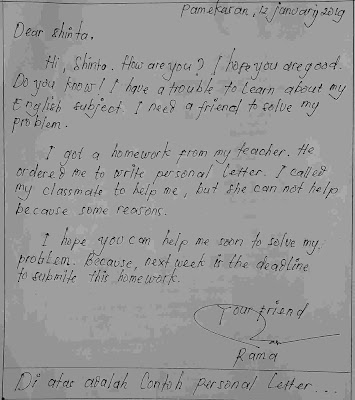 Pamekasan, 12 January 2019
Dear Shinta.
Hi, Shinta. How are you? I hope you are good.
Do you know! I have a trouble to learn about my
English subject. I need a friend to solve my
problem.
I got a homework from my teacher. He
ordered me to write personal letter. I called
my classmate to help me, but she can not help
because some reasons.
I hope you can help me soon to solve my
problem. Because, next week is the deadline
to submite this homework.
Your friend
Rama
Di atas adalah Contoh personal Letter...